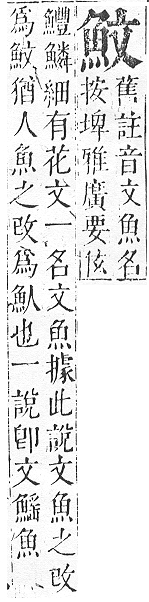 魰
舊註音文魚名
按埤雅廣要㤥
鱧鱗細有花文一名文魚據此說文魚之改
為魰猶人魚之改為魜也一說卽文鰩魚